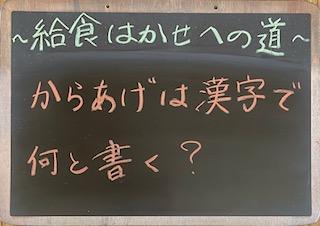 ~給食はかせへの道~
からあげは漢字で
何と書く?